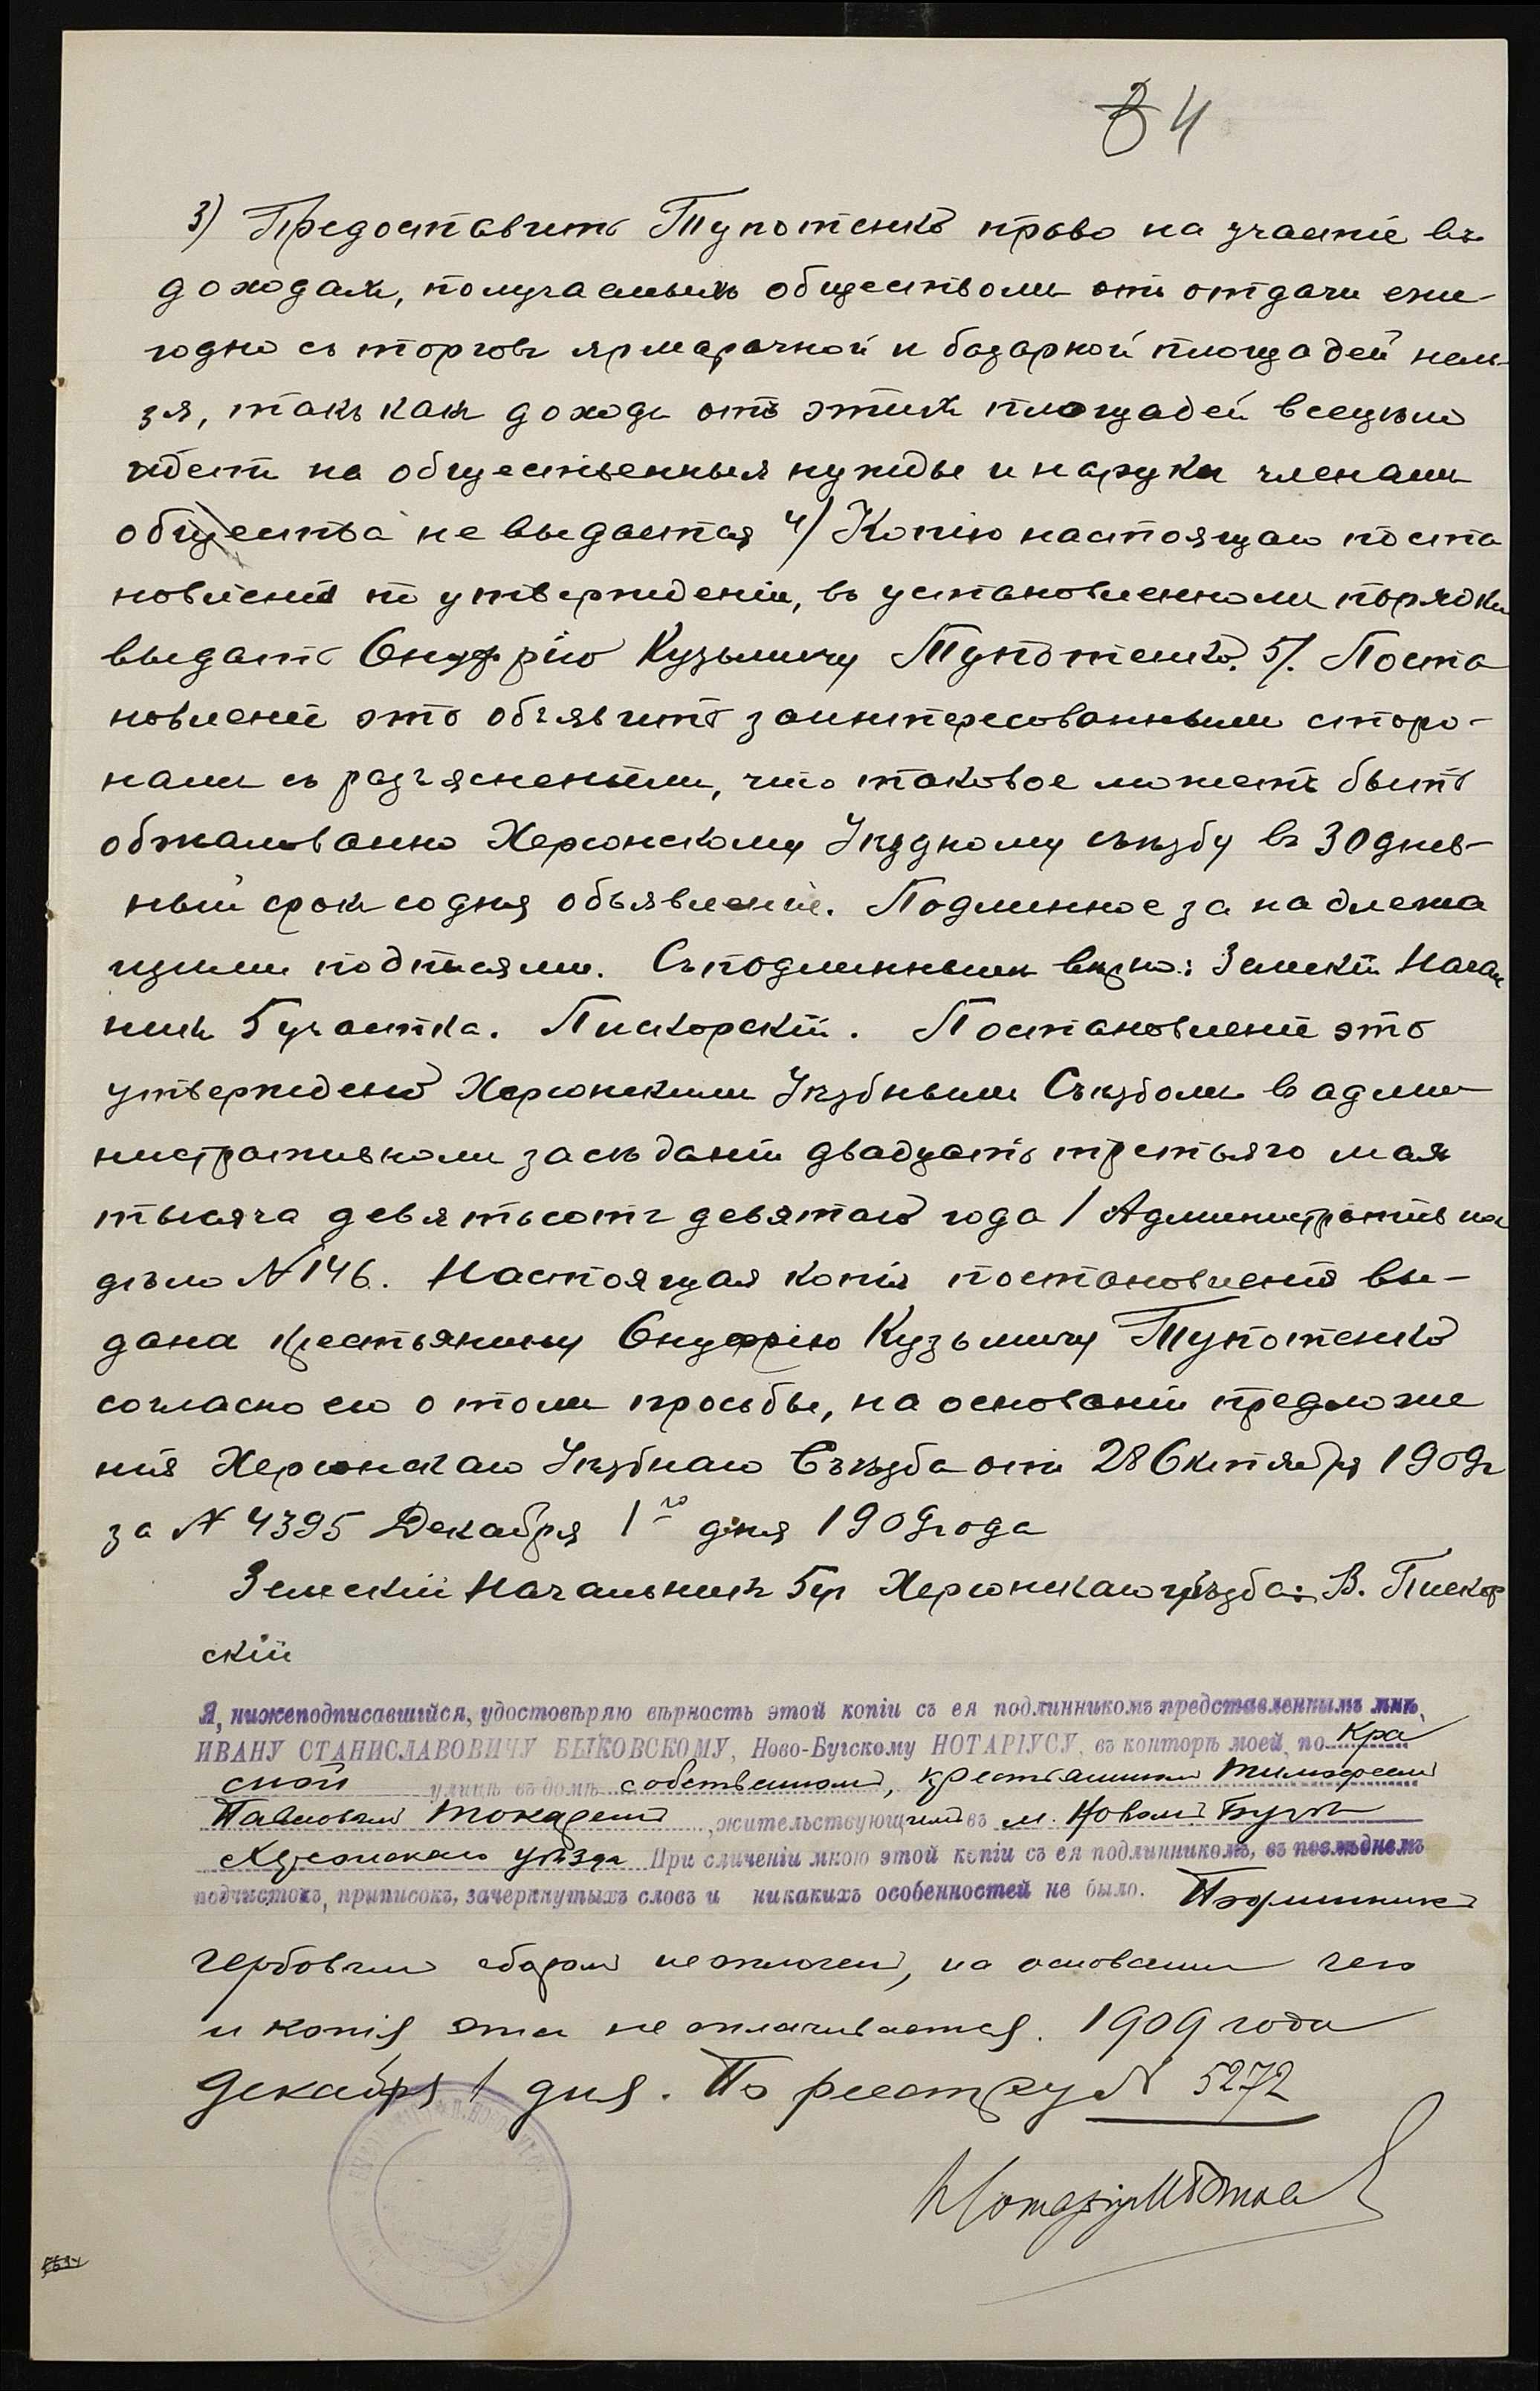 4
3) Предоставить Тупотенко право на участіе въ
доходахъ, получаемыхъ обществомъ отъ отдачи еже-
годно съ торговъ ярмарочной и базарной площадей нель-
зя, такъ какъ доходъ отъ этихъ площадей всецѣло
идетъ на общественныя нужды и на руки членамъ
общества не выдается 4) Копію настоящаго поста
новленія по утвержденіи, въ установленномъ порядкѣ
выдать Онуфрію Кузьмичу Тупотенко. 5). Поста
новленіе это объявить заинтересованнымъ сторо-
намъ съ разъясненіемъ, что таковое можетъ быть
обжаловано Херсонскому Уѣздному съѣзду въ 30 днев-
ный срокъ со дня объявленія. Подлинное за надлежа
щими подписями. Съ подлиннымъ вѣрно: Земскій Начал
никъ 5 участка. Пискорскій. Постановленіе это
утверждено Херсонскимъ Уѣзднымъ Съѣздомъ въ адми
нистративномъ засѣданіи двадцать третьяго мая
тысяча девятьсотъ девятаго года / Административное
дѣло № 146. Настоящая копія постановленія вы-
дана крестьянину Онуфрію Кузьмичу Тупотенко
согласно его о томъ просьбы, на основаніи предложе
нія Херсонскаго Уѣзднаго Съѣзда отъ 28 Октября 1909г
за № 4395 Декабря 1го дня 1909 года
Земскій Начальникъ 5 уч Херсонскаго уѣзда: В. Пискор
скій
Я, нижеподписавшійся, удостовѣряю вѣрность этой копіи съ ея подлинникомъ представленнымъ мнѣ,
ИВАНУ СТАНИСЛАВОВИЧУ БЫКОВСКОМУ, Ново-Бугскому НОТАРІУСУ, въ конторѣ моей, по Кра
сной улицѣ въ домѣ собственномъ, крестьяниномъ Тимофеемъ
Павловымъ Токаремъ, жительствующимъ въ м. Новомъ Бугѣ
Херсонскаго уѣзда При сличеніи мною этой копіи съ ея подлинникомъ, въ послѣднемъ
подчистокъ, приписокъ, зачеркнутыхъ словъ и никакихъ особенностей не было. Подлинникъ
гербовымъ сборомъ неоплоченъ, на основаніи чего
и копія эта не оплачивается. 1909 года
Декабря 1 дня. По реестру № 5272
Нотаріусъ